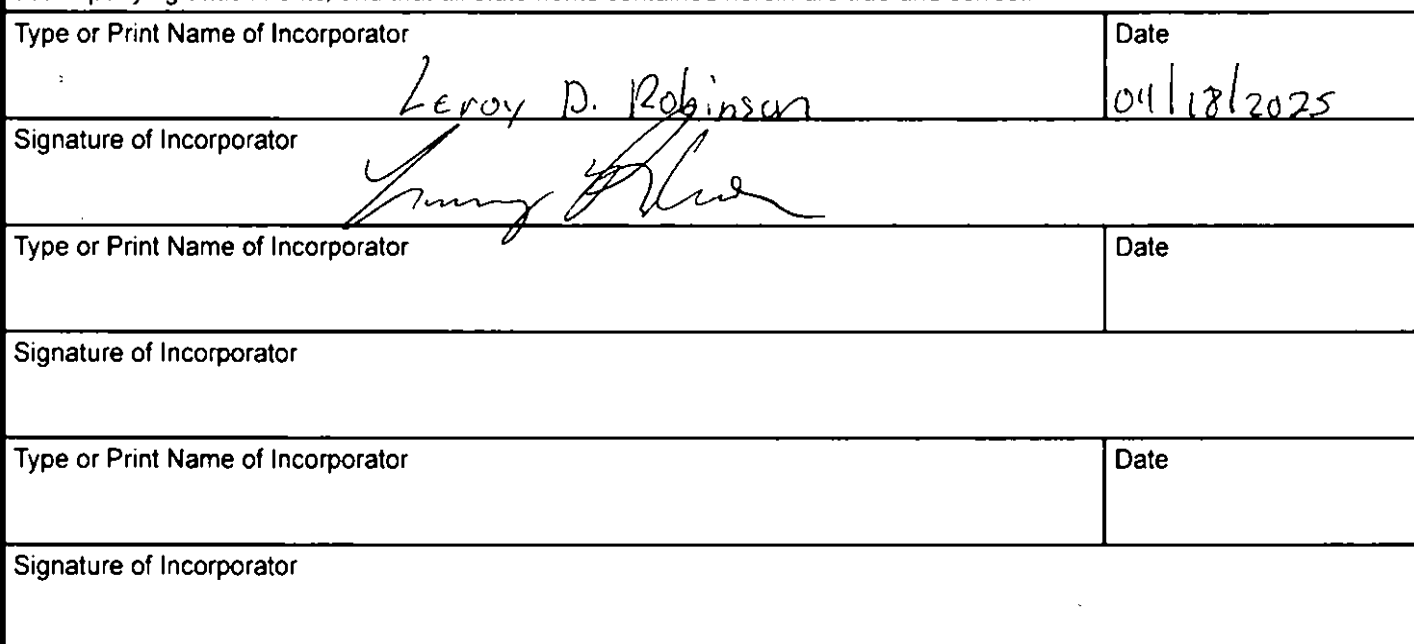 Type or Print Name of Incorporator Date
Leroy D. Robinson 04/18/2025
Signature of Incorporator
Type or Print Name of Incorporator Date
Signature of Incorporator
Type or Print Name of Incorporator Date
Signature of Incorporator